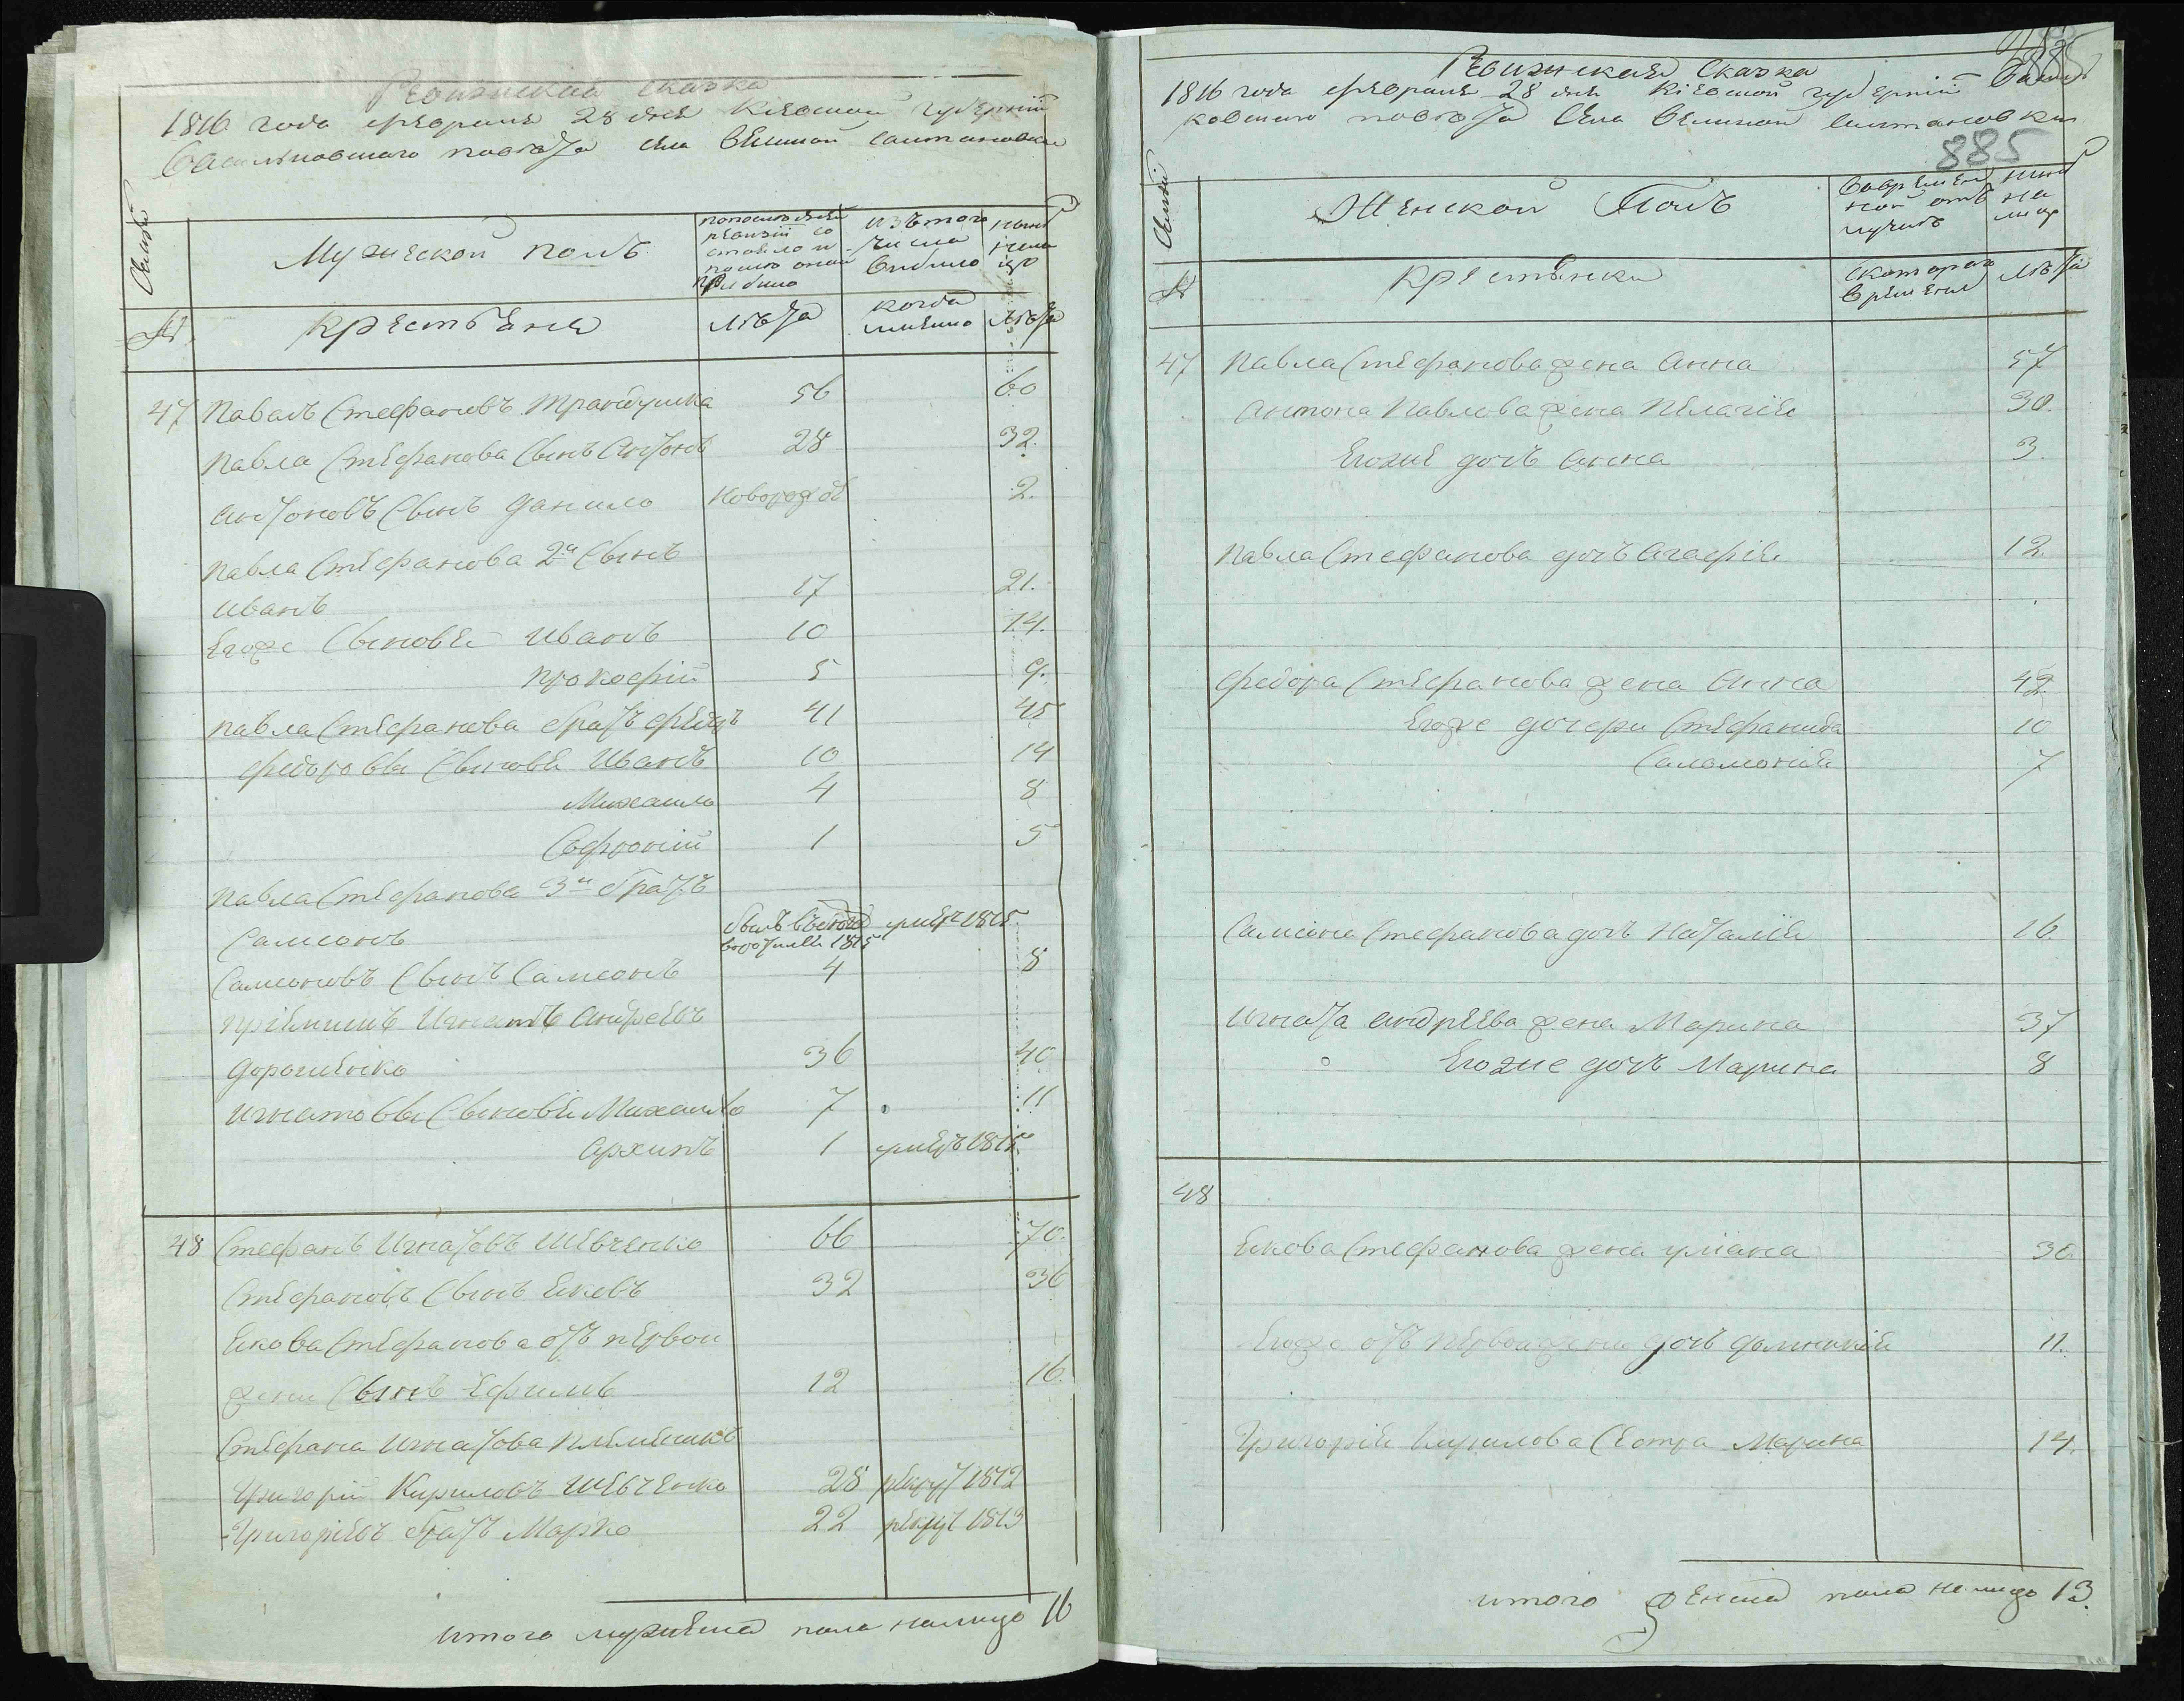 Ревизская сказка
1816 года февраля 28 дня Киевской губернии
Васильковского повета села Великой Салтановки
Семьи
Мужеской полъ
по последней ревизии состояло и после оной прибыло
изъ того числа выбыло
ныне на лицо
№
Крестьяне
лѣта
когда именно
лѣта
47 Павелъ Стефановъ Трандушка 56 60
Павла Стефанова сынъ Антонъ 28 32.
Антоновъ сынъ Данило новорожде 2.
Павла Стефанова 2й сынъ
Иванъ 17 21.
Егоже сыновья Иванъ 10 14.
Прокофий 5 9.
Павла Стефанова братъ Федоръ 41 45
Федоровы сыновья Иванъ 10 14
Михаило 4 8
Софроний 1 5
Павла Стефанова 3й братъ
Самсонъ умеръ 1815
Самсоновъ сынъ Самсонъ 4 8
приймышъ Игнатъ Андреевъ
Дорошенко 36 40
Игнатовы сыновья Михаило 7 11
Архипъ 1 умеръ 1815.
48 Стефанъ Игнатовъ Шевченко 66 70.
Стефановъ сынъ Яковъ 32 36
Якова Стефанова отъ первой
жены сынъ Ефимъ 12 16.
Стефана Игнатова племенникъ
Григорий Кириловъ Шевченко 28 рекрутъ 1812
Григориевъ братъ Марко 22 рекрутъ 1813
итого мужеска пола налицо 16
885
Ревизская сказка
1816 года февраля 28 дня Киевской губернии Василь
ковского повета села Великой Салтановки
885
Семьи
Женской Полъ
во временной отлучке
ныне на лицо
№
Крестьянки
с которого времени
лѣта
47 Павла Стефанова жена Анна 57
Антона Павлова жена Пелагия 30.
Егоже дочь Анна 3.
Павла Стефанова дочь Агафия 12.
Федора Стефанова жена Анна 42.
Егоже дочери Стефанида 10
Саламония 7
Самсона Стефанова дочь Наталия 16.
Игната Андреева жена Марина 37
Егоже дочь Марина 8
48
Якова Стефанова жена Улиана 30.
Егоже отъ первой жены дочь Домникия 11.
Григория Кирилова сестра Марина 14.
итого женска пола налицо 13.